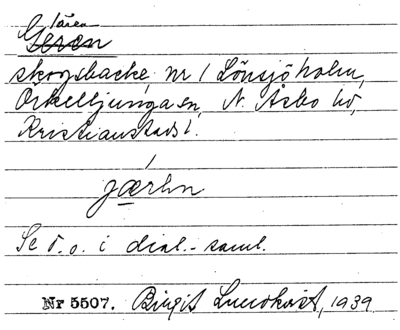 Jären
Geren
skogsbacke, nr 1 Lönsjöholm,
Örkelljunga sn, N. Åsbo hd,
Kristianstads l.
jærən
Se d. o. i dial.-saml.
Nr 5507. Birgit Lundkvist, 1939